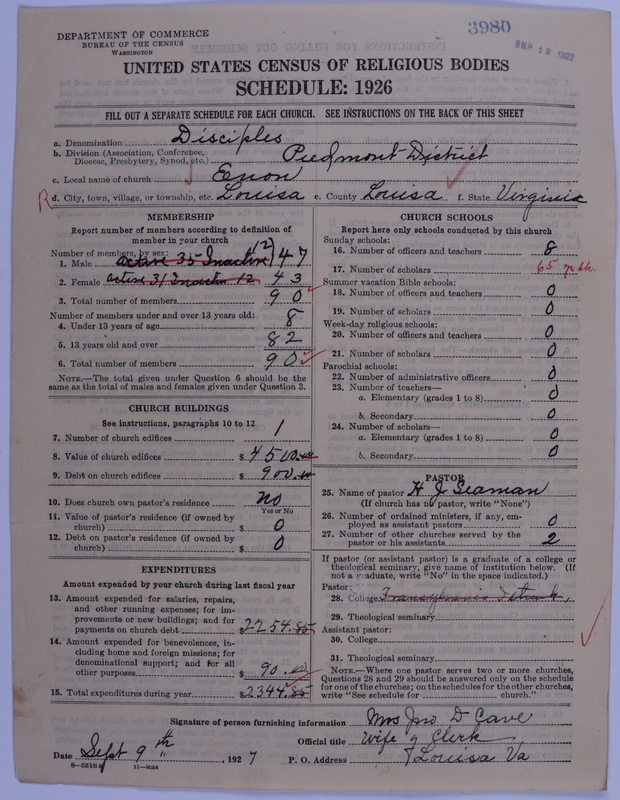 DEPARTMENT OF COMMERCE
BUREAU OF THE CENSUS
WASHINGTON
3980
SEP 13 1927
UNITED STATES CENSUS OF RELIGIOUS BODIES
SCHEDULE: 1926
FILL OUT A SEPARATE SCHEDULE FOR EACH CHURCH. SEE INSTRUCTIONS ON THE BACK OF THIS SHEET
a. Denomination Disciples
b. Division (Association, Conference, Diocese, Presbytery, Synod, etc.) Piedmont District
c. Local name of church Enon
d. City, town, village, or township, etc. Louisa e. County Louisa f. State Virginia
MEMBERSHIP
Report number of members according to definition of
member in your church
Number of members, by sex:
1. Male active 35 Inactive 12 47
2. Female active 31 Inactive 12 43
3. Total number of members 90
Number of members under and over 13 years old:
4. Under 13 years of age 8
5. 13 years old and over 82
6. Total number of members 90
NOTE.—The total given under Question 6 should be the
same as the total of males and females given under Question 3.
CHURCH BUILDINGS
See instructions, paragraphs 10 to 12
7. Number of church edifices 1
8. Value of church edifices $4500.00
9. Debt on church edifices $900.00
10. Does church own pastor's residence no
Yes or No
11. Value of pastor's residence (if owned by
church) $ 0
12. Debt on pastor's residence (if owned by
church) $ 0
EXPENDITURES
Amount expended by your church during last fiscal year
13. Amount expended for salaries, repairs,
and other running expenses; for im-
provements or new buildings; and for
payments on church debt $2254.85
14. Amount expended for benevolences, in-
cluding home and foreign missions; for
denominational support; and for all
other purposes $90.00
15. Total expenditures during year $2344.85
CHURCH SCHOOLS
Report here only schools conducted by this church
Sunday schools:
16. Number of officers and teachers 8
17. Number of scholars 65
Summer vacation Bible schools:
18. Number of officers and teachers 0
19. Number of scholars 0
Week-day religious schools:
20. Number of officers and teachers 0
21. Number of scholars 0
Parochial schools:
22. Number of administrative officers 0
23. Number of teachers—
a. Elementary (grades 1 to 8) 0
b. Secondary 0
24. Number of scholars—
a. Elementary (grades 1 to 8) 0
b. Secondary 0
PASTOR
25. Name of pastor H J Seaman
(If church has no pastor, write "None")
26. Number of ordained ministers, if any, em-
ployed as assistant pastors 0
27. Number of other churches served by the
pastor or his assistants 2
If pastor (or assistant pastor) is a graduate of a college or
theological seminary, give name of institution below. (If
not a graduate, write "No" in the space indicated.)
Pastor:
28. College Transylvania
29. Theological seminary
Assistant pastor:
30. College
31. Theological seminary
NOTE.—Where one pastor serves two or more churches,
Questions 28 and 29 should be answered only on the schedule
for one of the churches; on the schedules for the other churches,
write "See schedule for church."
Signature of person furnishing information Mrs Jno D Cave
Official title Wife of Clerk
Date Sept 9th, 1927 P. O. Address Louisa Va
8-5518a 11-9024